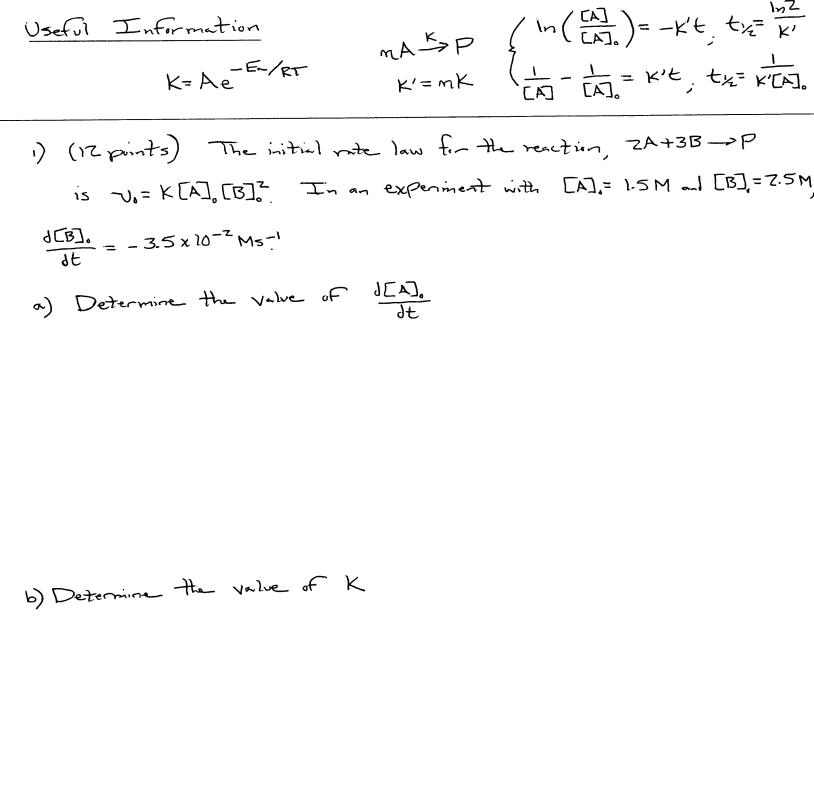 Useful Information
K = Ae^{-Ea/RT}
mA \xrightarrow{K} P
K' = mK
ln([A]/[A]₀) = -K't, t½ = ln2/K'
1/[A] - 1/[A]₀ = K't, t½ = 1/K'[A]₀
1) (12 points) The initial rate law for the reaction, 2A+3B → P
is v₀ = K[A]₀[B]₀². In an experiment with [A]₀ = 1.5 M and [B]₀ = 2.5 M,
d[B]₀/dt = -3.5 x 10⁻² Ms⁻¹.
a) Determine the value of d[A]₀/dt
b) Determine the value of K